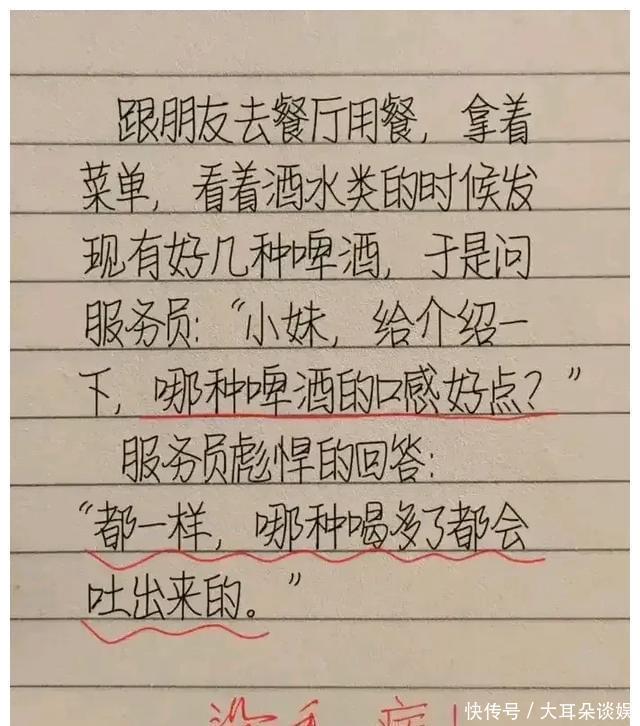 跟朋友去餐厅用餐，拿着
菜单，看着酒水类的时候发
现有好几种啤酒，于是问
服务员：“小妹，给介绍一
下，哪种啤酒的口感好点？”
服务员彪悍的回答：
“都一样，哪种喝多了都会
吐出来的。”
快传号／大耳朵谈娱